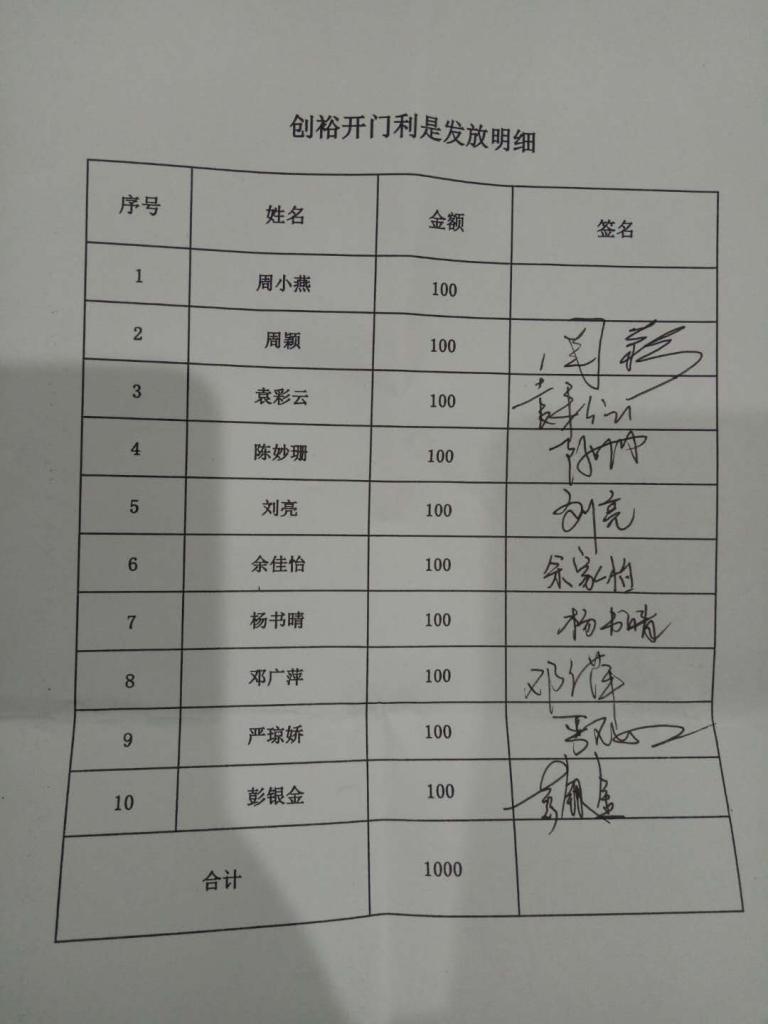 创裕开门利是发放明细
序号 姓名 金额 签名
1 周小燕 100
2 周颖 100
3 袁彩云 100 袁彩云
4 陈妙珊 100
5 刘亮 100 刘亮
6 余佳怡 100 余家怡
7 杨书晴 100 杨书晴
8 邓广萍 100 邓广萍
9 严琼娇 100
10 彭银金 100 彭银金
合计 1000